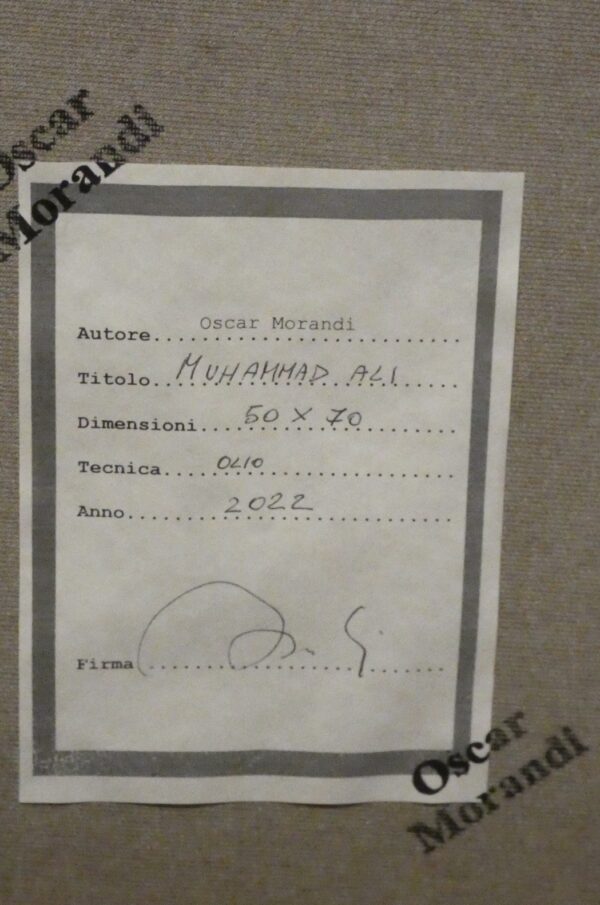 Oscar
Morandi
Autore...Oscar Morandi
Titolo...MUHAMMAD ALI
Dimensioni...50 X 70
Tecnica...OLIO
Anno...2022
Firma
Oscar
Morandi